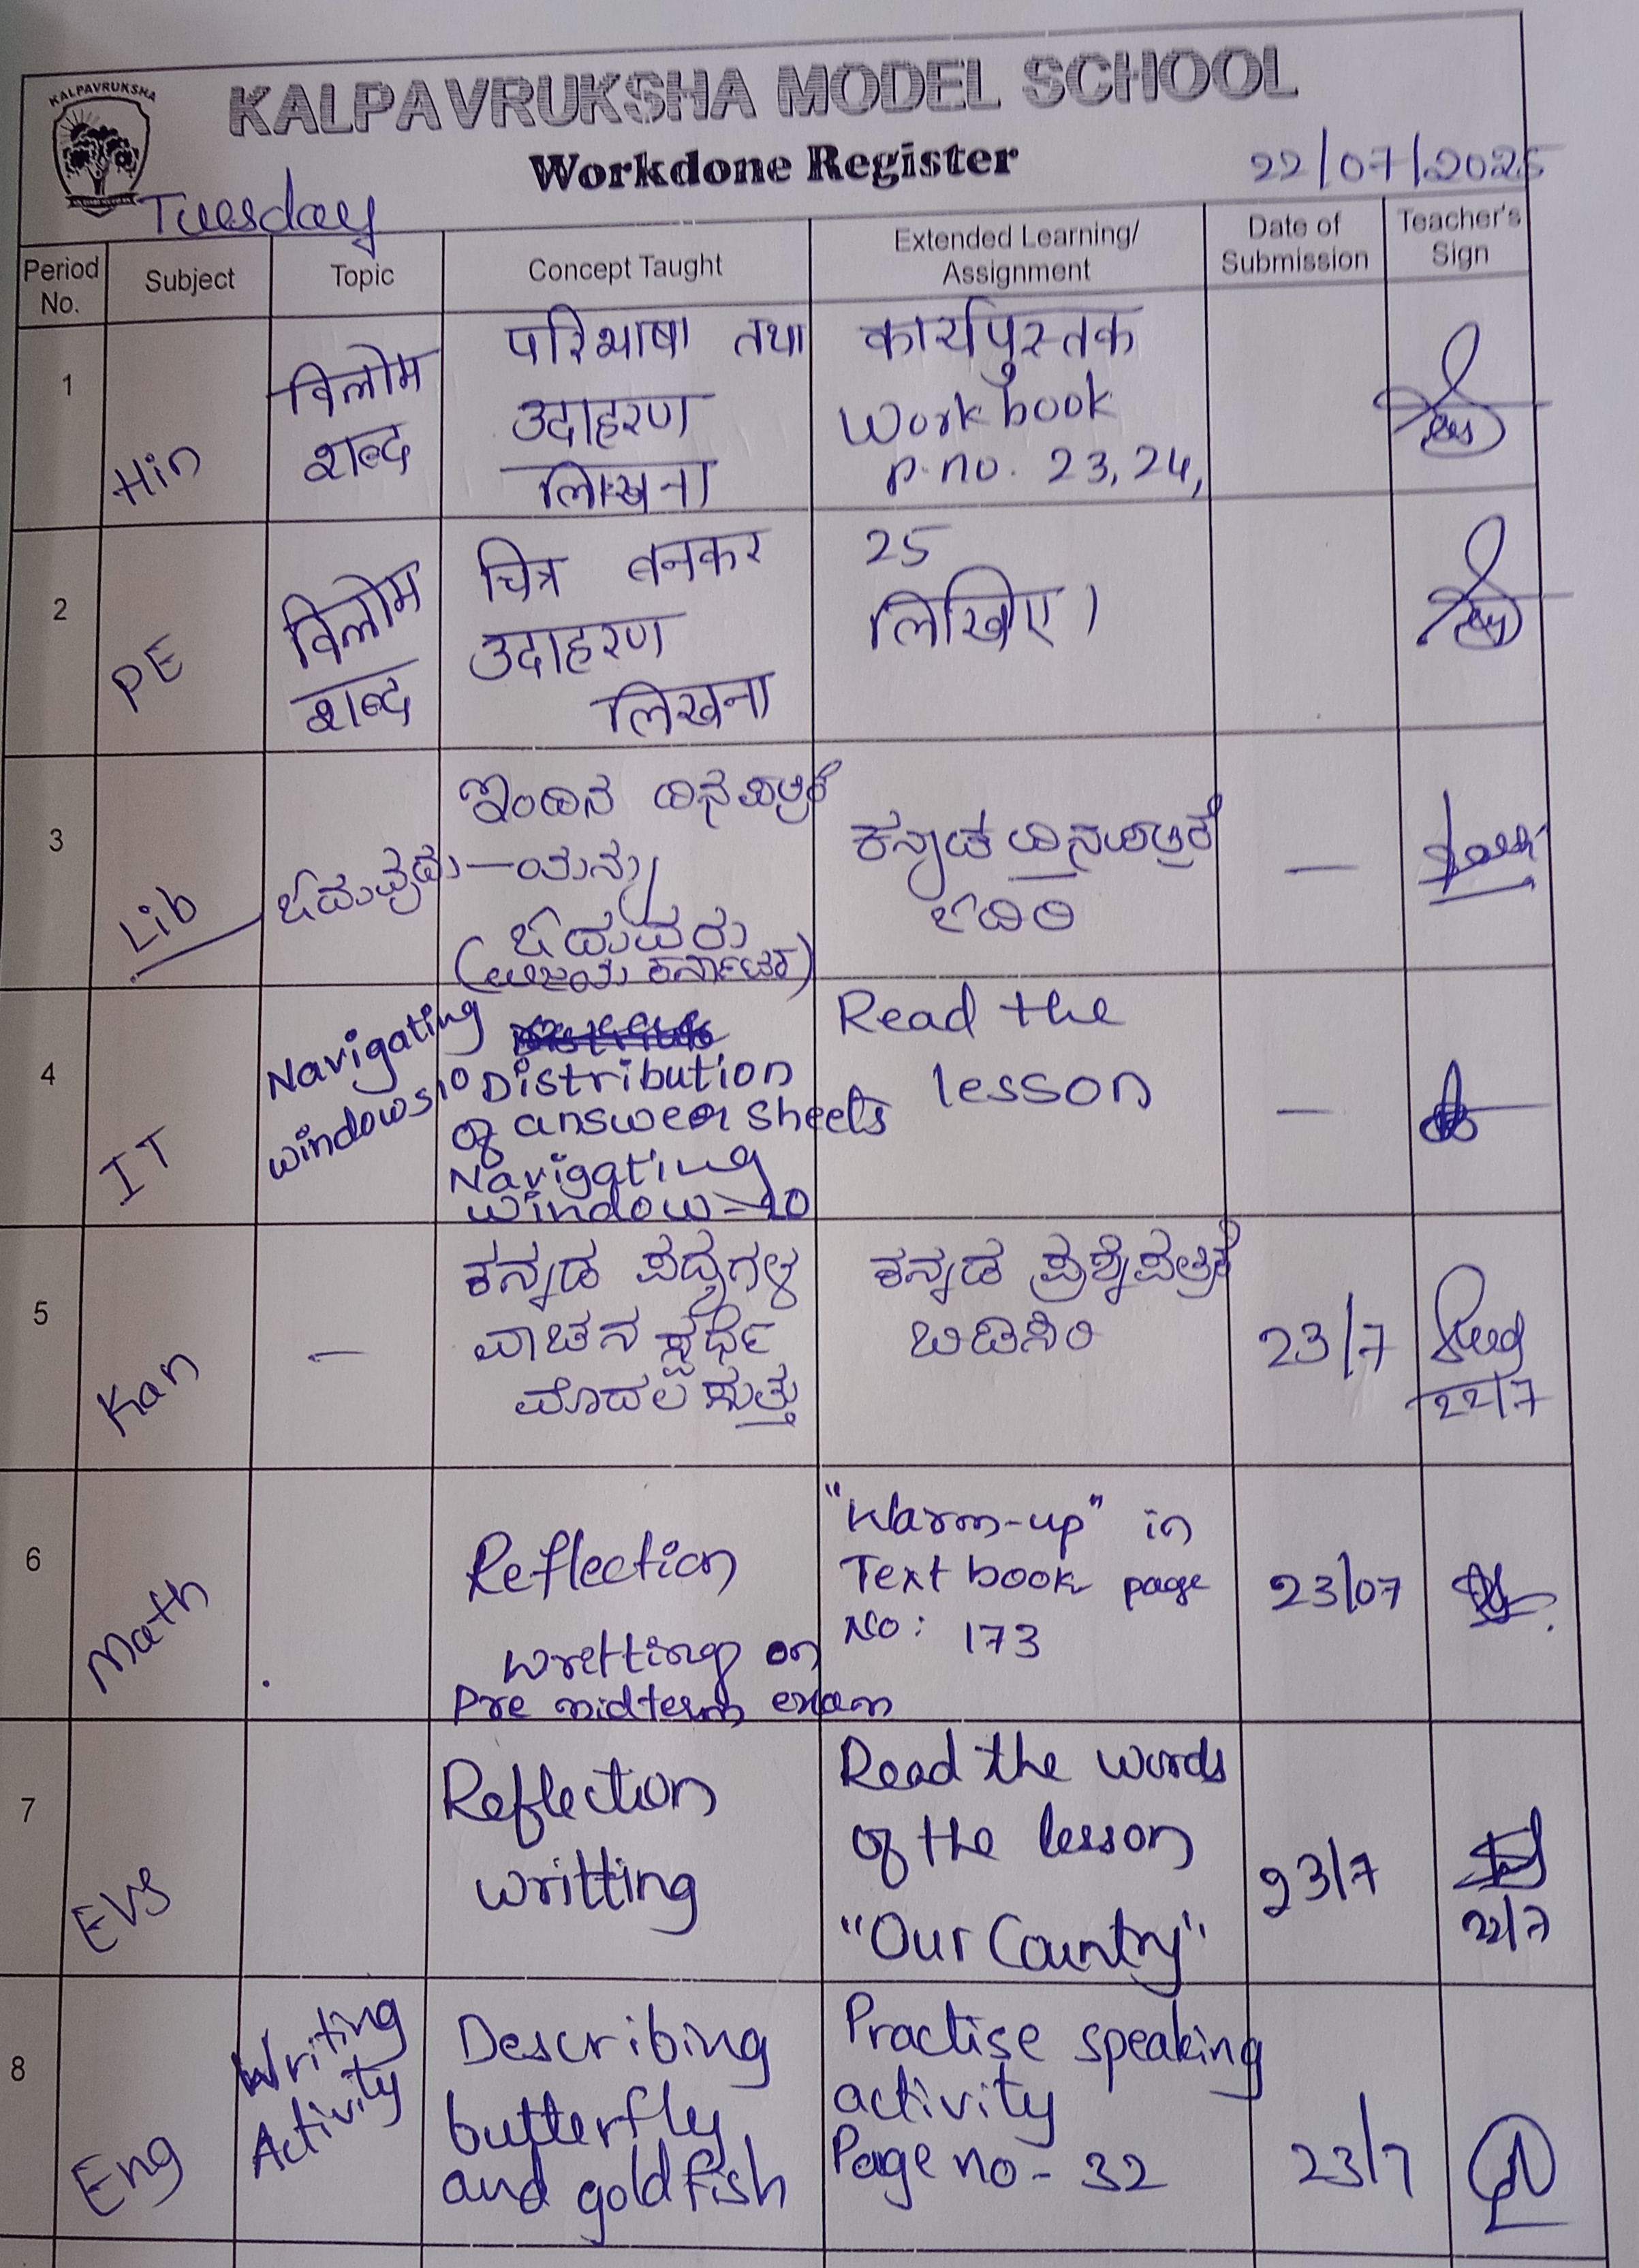 KALPAVRUKSHA
KALPAVRUKSHA MODEL SCHOOL
Workdone Register
22/07/2025
Tuesday
Period No.
Subject
Topic
Concept Taught
Extended Learning/
Assignment
Date of
Submission
Teacher's
Sign
1
Hin
विलोम
शब्द
परिभाषा तथा
उदाहरण
लिखना
कार्यपुस्तक
Work book
p.no. 23, 24,
2
PE
विलोम
शब्द
चित्र बनकर
उदाहरण
लिखना
25
लिखिए।
3
Lib
ಓದುವುದು
ಇಂದಿನ ದಿನಪತ್ರಿಕೆ
—ಯನ್ನು
ಓದುವರು
(ವಿಜಯ ಕರ್ನಾಟಕ)
ಕನ್ನಡ ದಿನಪತ್ರಿಕೆ
ಓದಿರಿ
—
4
IT
Navigating
windows10
Distribution
of answer sheets
Navigating
window-10
Read the
lesson
—
5
Kan
—
ಕನ್ನಡ ಪದ್ಯಗಳ
ವಾಚನ ಸ್ಪರ್ಧೆ
ಮೊದಲ ಸುತ್ತು
ಕನ್ನಡ ಪ್ರಶ್ನೆಪತ್ರಿಕೆ
ಬಿಡಿಸಿರಿ
23/7
22/7
6
Math
Reflection
writting on
Pre midterm exam
"Warm-up" in
Text book page
No: 173
23/07
7
EVS
Reflection
writting
Read the words
of the lesson
"Our Country"
23/7
22/7
8
Eng
Writing
Activity
Describing
butterfly
and goldfish
Practise speaking
activity
Page no - 32
23/7